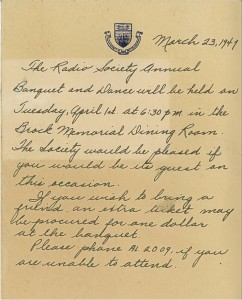 March 23, 1947
The Radio Society Annual
Banquet and Dance will be held on
Tuesday, April 1st at 6:30 pm in the
Brock Memorial Dining Room.
The Society would be pleased if
you would be its guest on
this occasion.
If you wish to bring a
friend an extra ticket may
be procured for one dollar
at the banquet.
Please phone AL 2009, if you
are unable to attend.